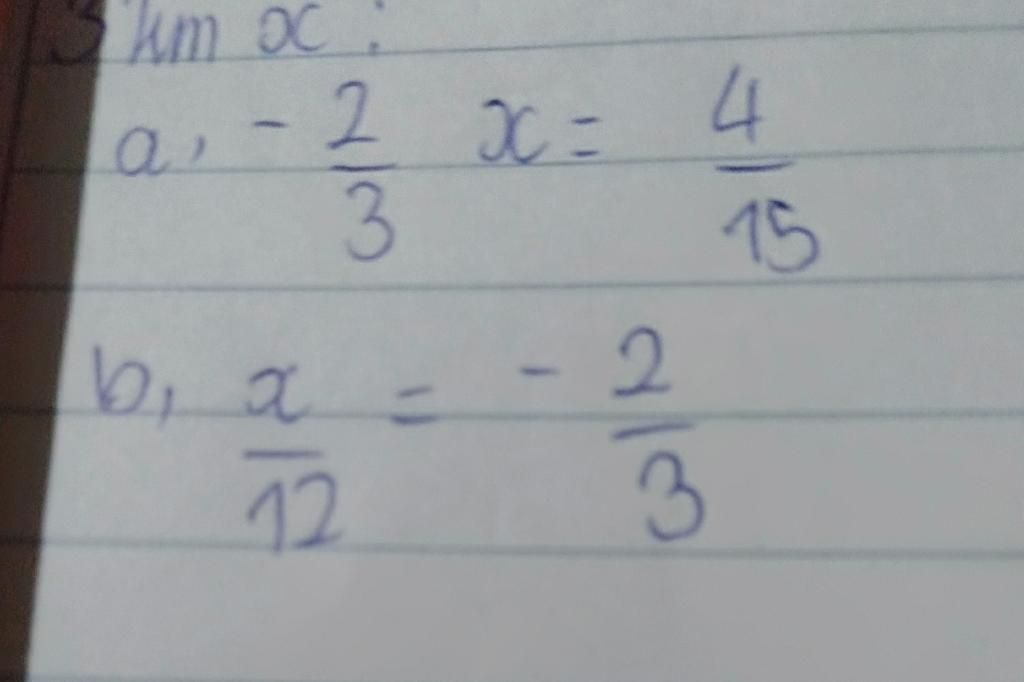 3 km x :
a, - 2/3 x = 4/15
b, x/12 = - 2/3